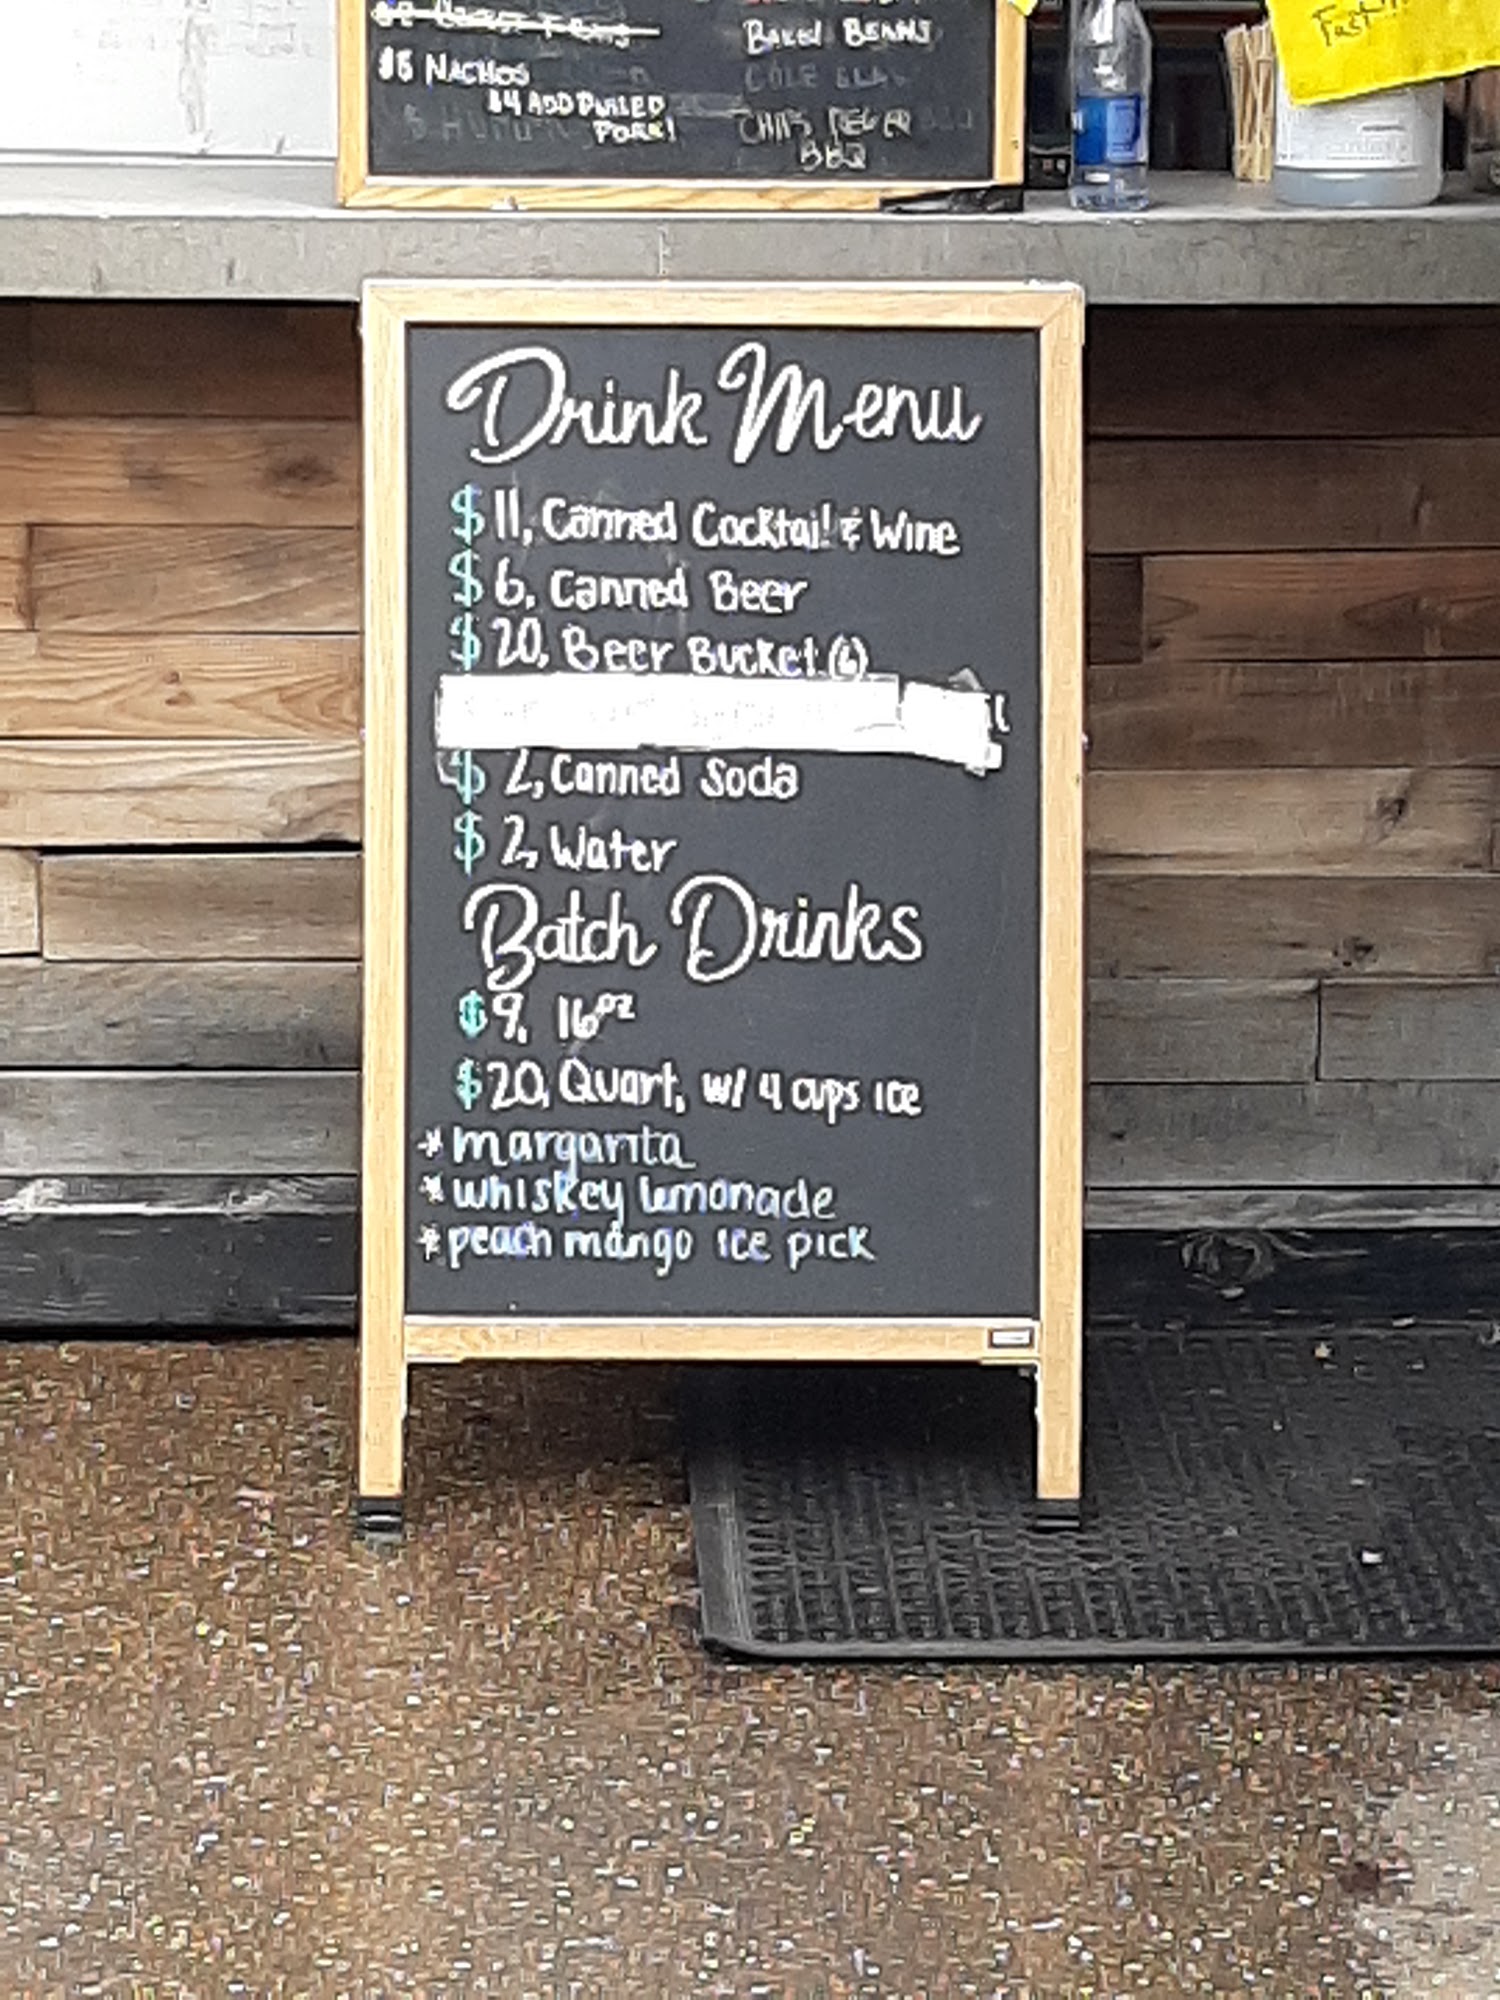 $5 NACHOS
$4 ADD PULLED
PORK!
BAKED BEANS
COLE SLAW
CHIPS REG OR
BBQ
Fast
Drink Menu
$11, Canned Cocktail & Wine
$6, Canned Beer
$20, Beer Bucket (6)
$2, Canned Soda
$2, Water
Batch Drinks
$9, 16oz
$20, Quart, w/ 4 cups ice
* margarita
* whiskey lemonade
* peach mango ice pick